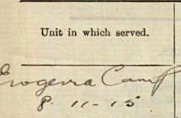 Unit in which served.
Enogerra Camp
8. 11-15